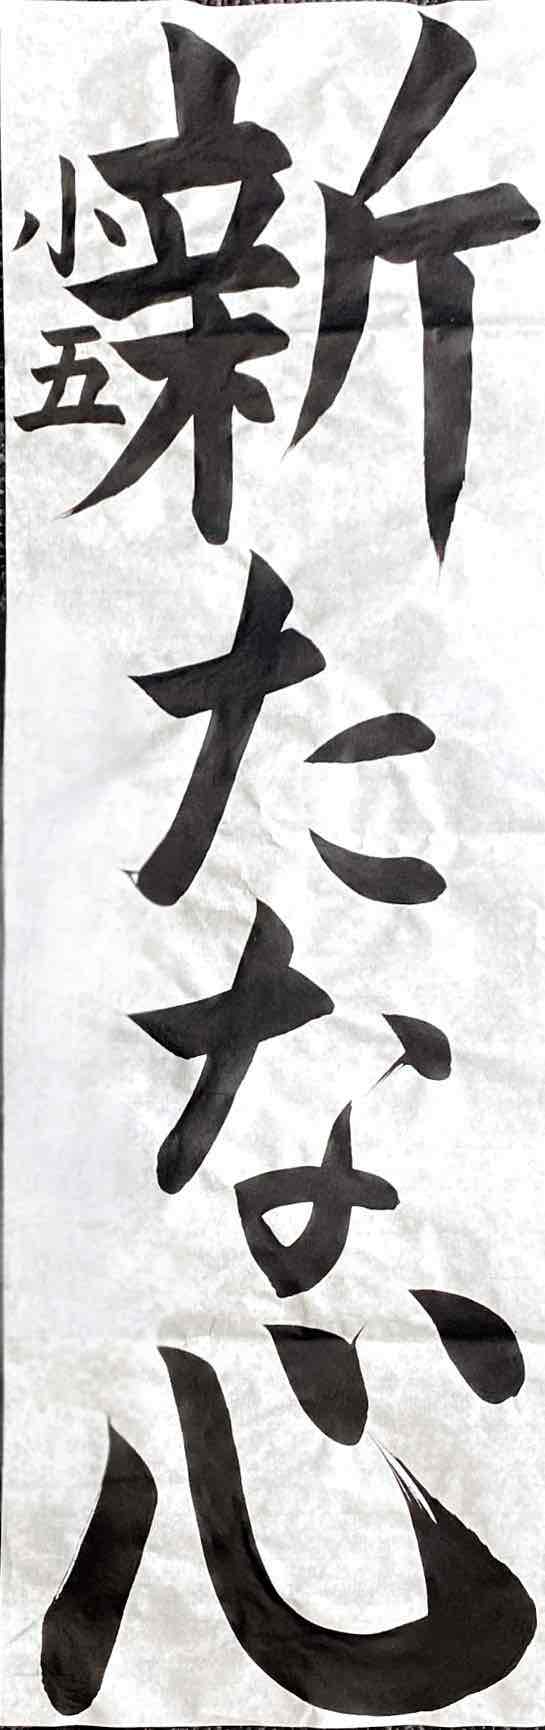 新たな心
小五